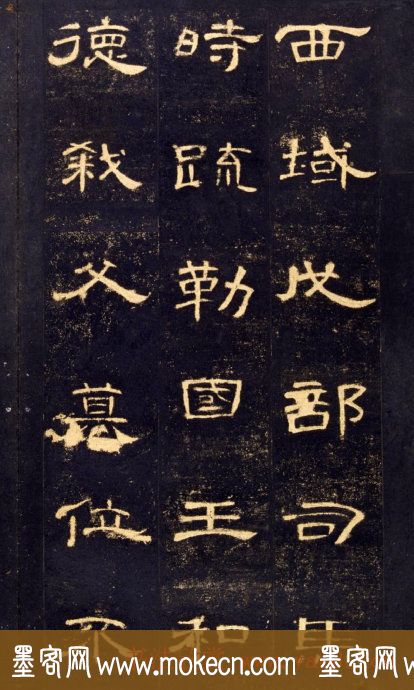 西域戊部司馬
時疏勒國王和
德弒父篡位不
墨客网 www.mokecn.com 墨客网